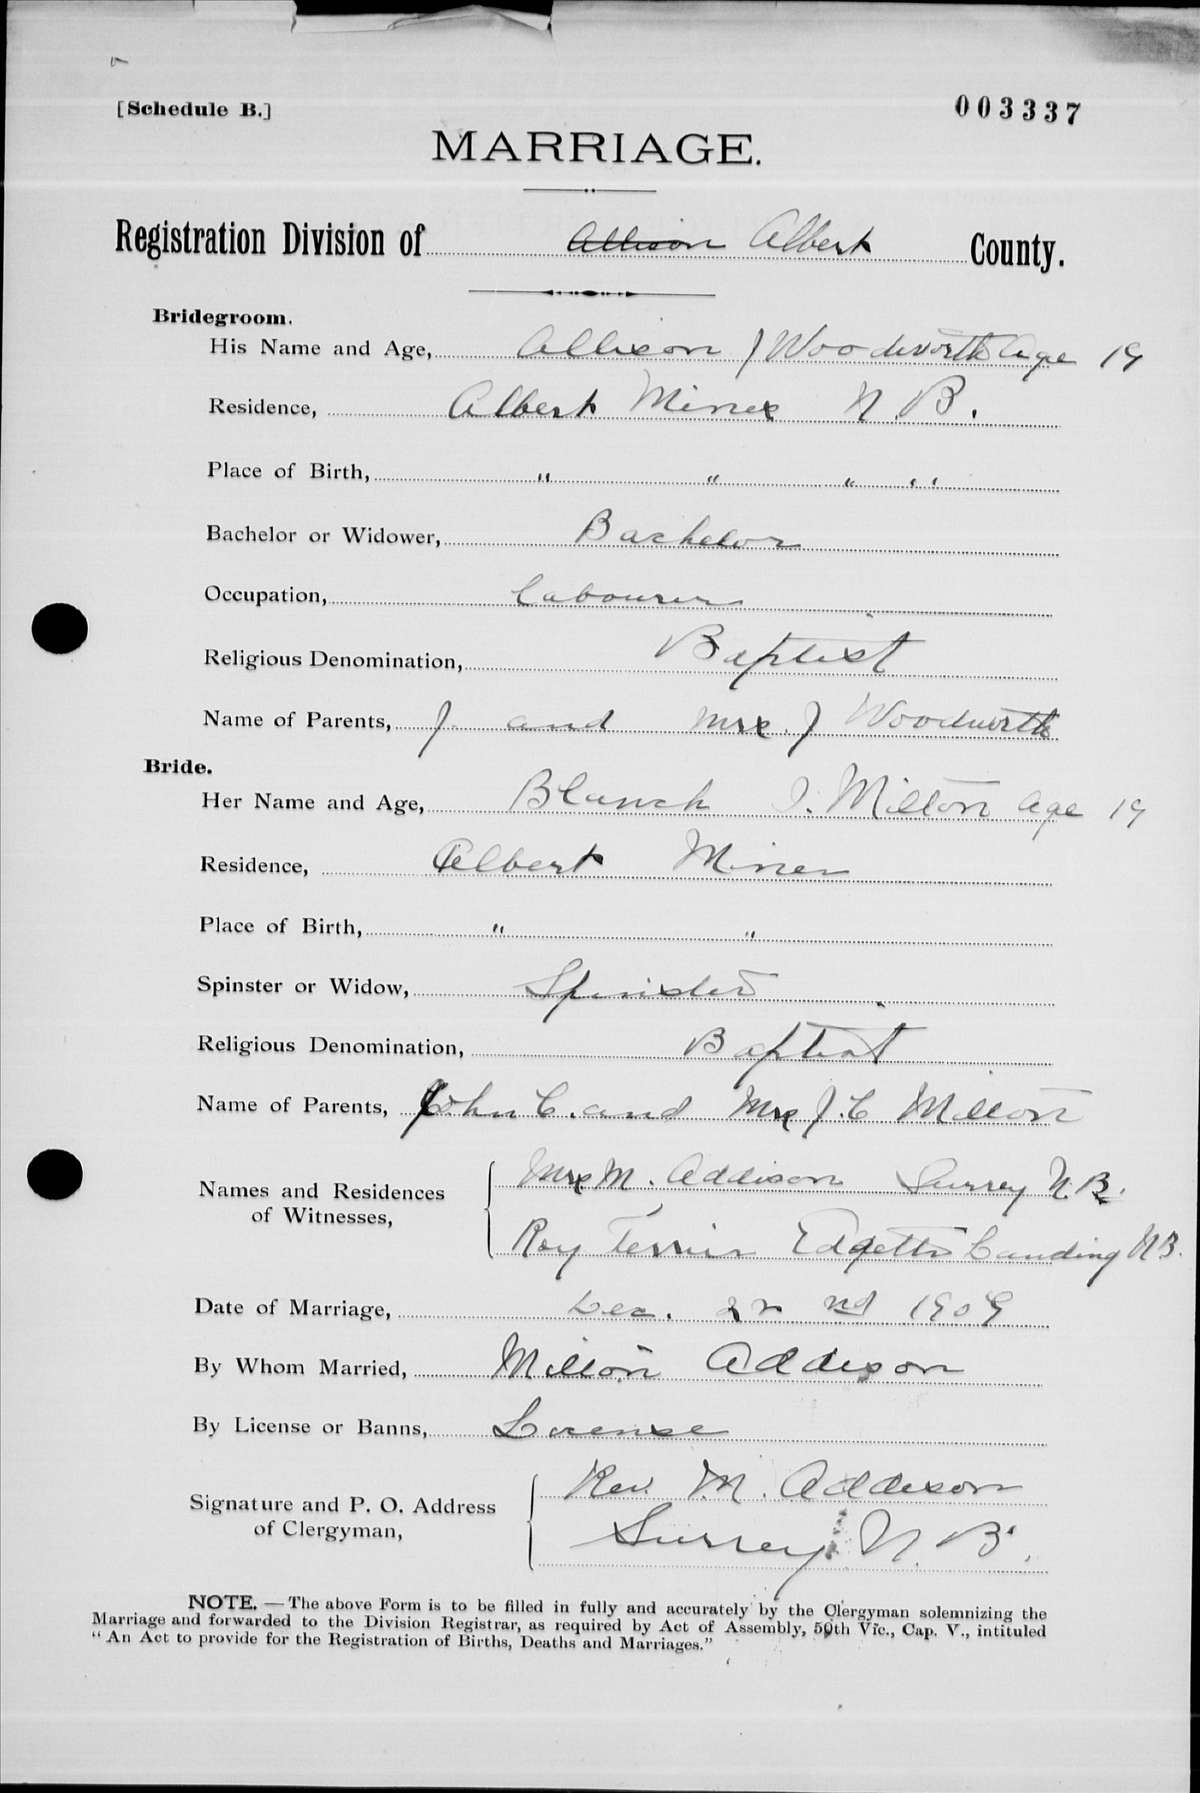 [Schedule B.]
003337
MARRIAGE.
Registration Division of Allison Albert County.
Bridegroom.
His Name and Age, Allison J Woodworth Age 19
Residence, Albert Mines N.B.
Place of Birth, " " " "
Bachelor or Widower, Bachelor
Occupation, Labourer
Religious Denomination, Baptist
Name of Parents, J. and Mrs. J Woodworth
Bride.
Her Name and Age, Blanch I. Milton Age 19
Residence, Albert Mines
Place of Birth, " "
Spinster or Widow, Spinster
Religious Denomination, Baptist
Name of Parents, John C. and Mrs J.C Milton
Names and Residences
of Witnesses,
Mrs M. Addison Surrey N.B.
Roy Edgetts Landing N.B.
Date of Marriage, Dec. 22 nd 1909
By Whom Married, Milton Addison
By License or Banns, License
Signature and P. O. Address
of Clergyman,
Rev. M. Addison
Surrey N.B.
NOTE. — The above Form is to be filled in fully and accurately by the Clergyman solemnizing the
Marriage and forwarded to the Division Registrar, as required by Act of Assembly, 50th Vic., Cap. V., intituled
"An Act to provide for the Registration of Births, Deaths and Marriages."